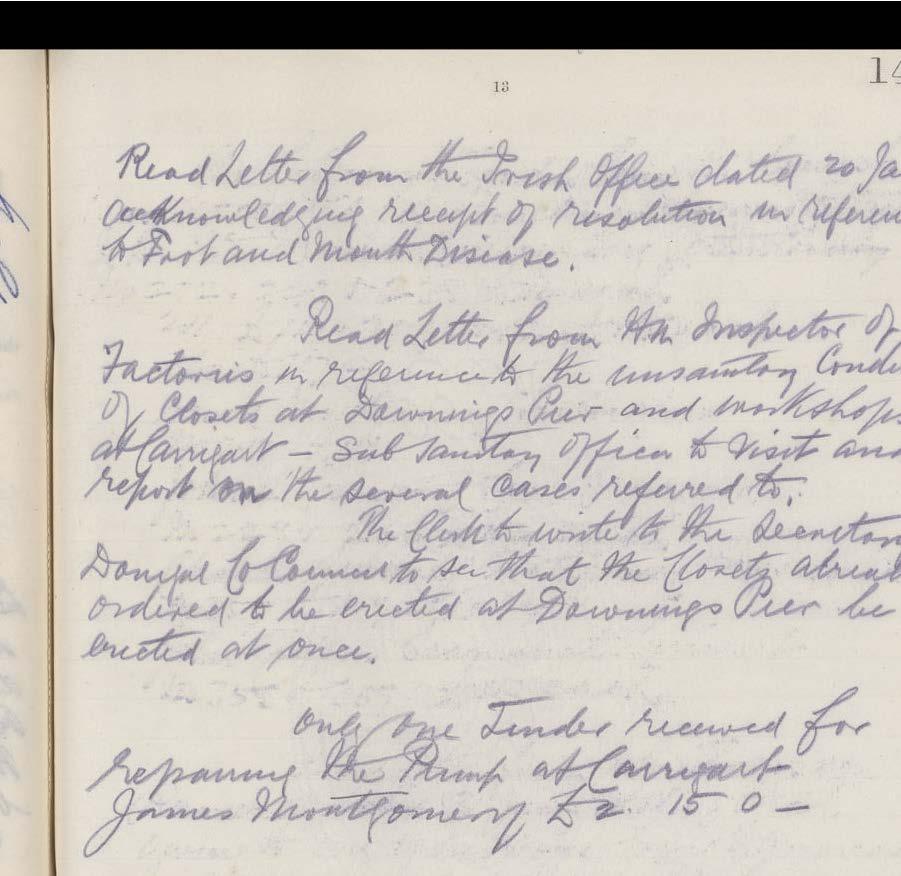 13
14
Read Letter from the Irish Office dated 20 Ja
acknowledging receipt of resolution in referen
to Foot and Mouth Disease.
Read Letter from HM Inspector of
Factories in reference to the unsanitary Condi
of Closets at Downings Pier and workshops
at Carrigart – Sub Sanitary Officer to Visit and
report on the several cases referred to.
The Clerk to write to the Secretary
Donegal Co Council to see that the Closets alread
ordered to be erected at Downings Pier be
erected at once.
Only one Tender received for
repairing the Pump at Carrigart
James Montgomery £2 15 0 –